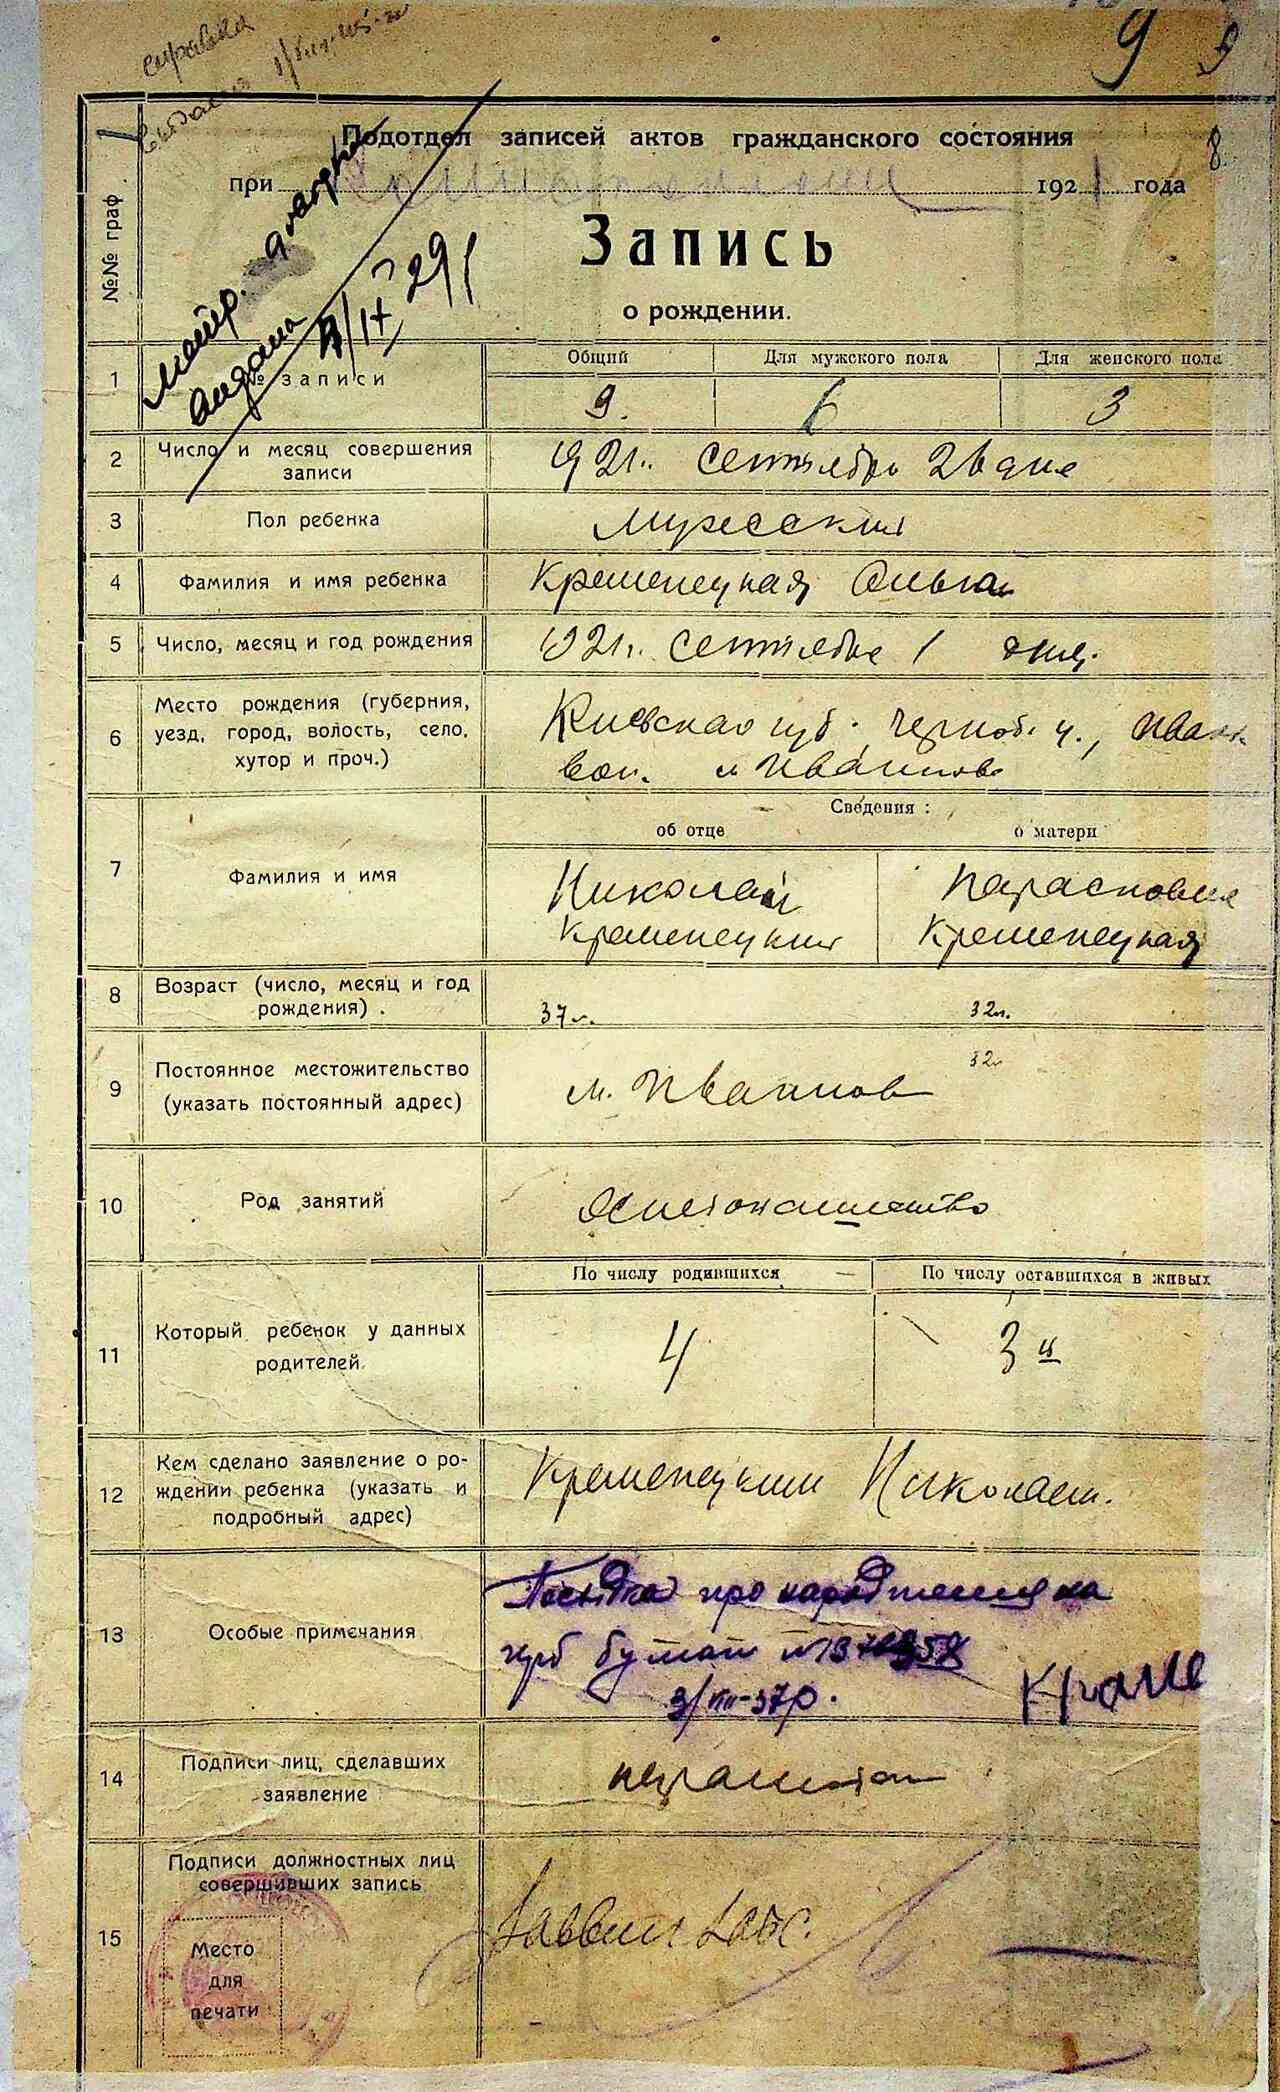 справка
выдана
9 9
8.
Подотдел записей актов гражданского состояния
при 1921 года
метр.
выдана 4/IX 29 г
Запись
о рождении.
№№ граф
Общий Для мужского пола Для женского пола
1 № записи 9. 6 3
2 Число и месяц совершения
записи
1921 г. сентября 26 дня
3 Пол ребенка
4 Фамилия и имя ребенка Кременецкая Ольга
5 Число, месяц и год рождения 1921 г. сентября 1 дня.
6 Место рождения (губерния,
уезд, город, волость, село,
хутор и проч.)
Киевская губ. Черноб. у., Иванк.
вол. м Иванков
Сведения:
об отце о матери
7 Фамилия и имя
Николай Парасковия
Кременецкий Кременецкая
8 Возраст (число, месяц и год
рождения).
37 л. 32 л.
32 л
9 Постоянное местожительство
(указать постоянный адрес)
м. Иванков
10 Род занятий
По числу родившихся По числу оставшихся в живых
11 Который ребенок у данных
родителей.
4 3й
12 Кем сделано заявление о ро-
ждении ребенка (указать и
подробный адрес)
Кременецким Николаем.
13 Особые примечания
про народження на
герб бумаги №
3/VIII-37р.
14 Подписи лиц, сделавших
заявление
неграмотен
15 Подписи должностных лиц
совершивших запись
Место
для
печати